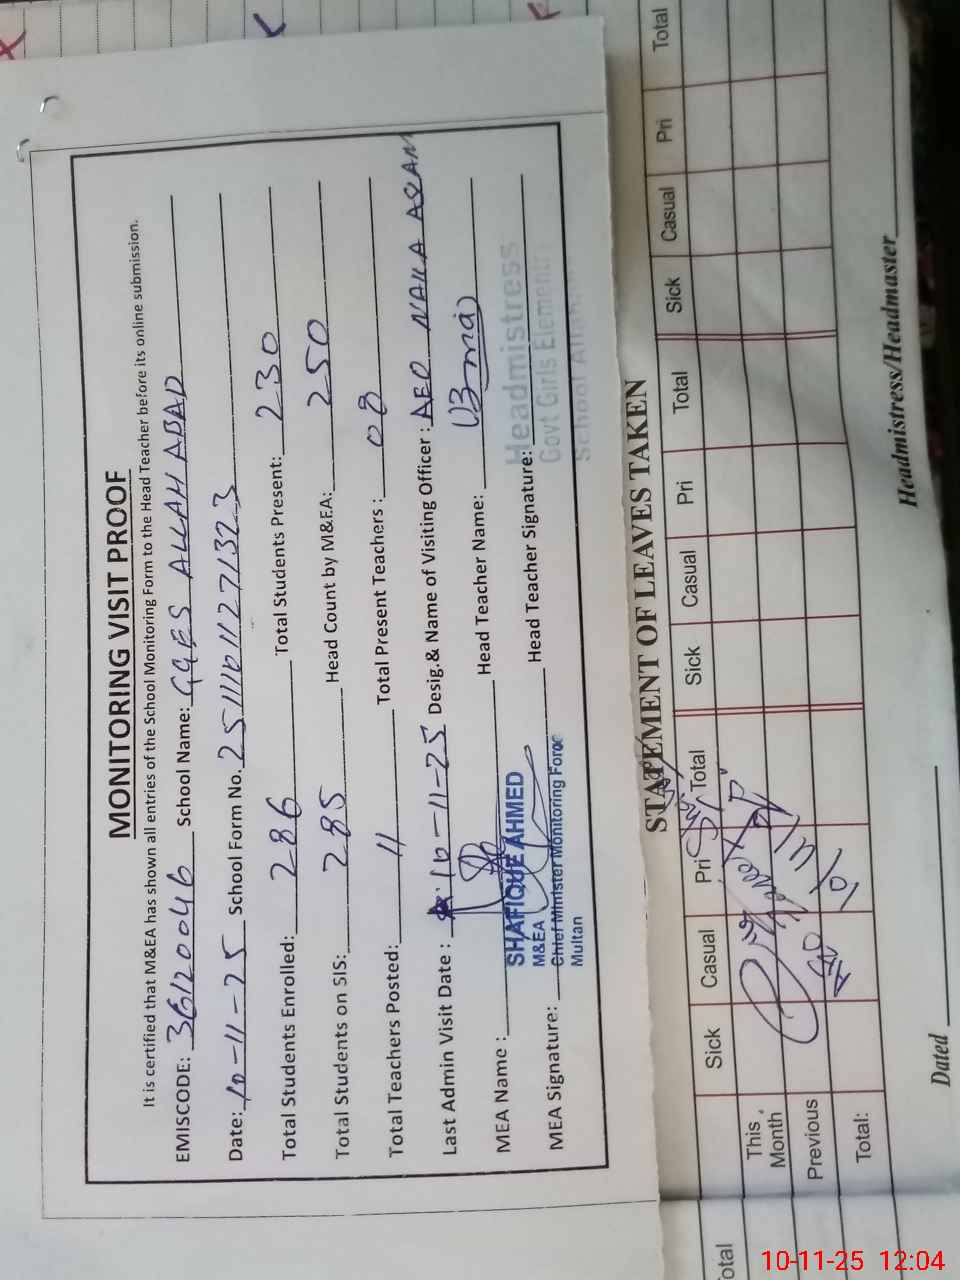 MONITORING VISIT PROOF
It is certified that M&EA has shown all entries of the School Monitoring Form to the Head Teacher before its online submission.
EMISCODE: 36120046 School Name: GGES ALLAH ABAD
Date: 10-11-25 School Form No. 251110112713 23
Total Students Enrolled: 286 Total Students Present: 230
Total Students on SIS: 285 Head Count by M&EA: 250
Total Teachers Posted: 11 Total Present Teachers : 08
Last Admin Visit Date : 10-11-25 Desig.& Name of Visiting Officer : AEO NAILA ASLAM
MEA Name : Head Teacher Name: Uzma
SHAFIQUE AHMED
M&EA
MEA Signature: Chief Minister Monitoring Force Head Teacher Signature:
Multan
Headmistress
Govt Girls Elementry
School
STATEMENT OF LEAVES TAKEN
Sick Casual Pri Total Sick Casual Pri Total Sick Casual Pri Total
This Month
Previous
AEO
Total:
Dated Headmistress/Headmaster
otal
10-11-25 12:04